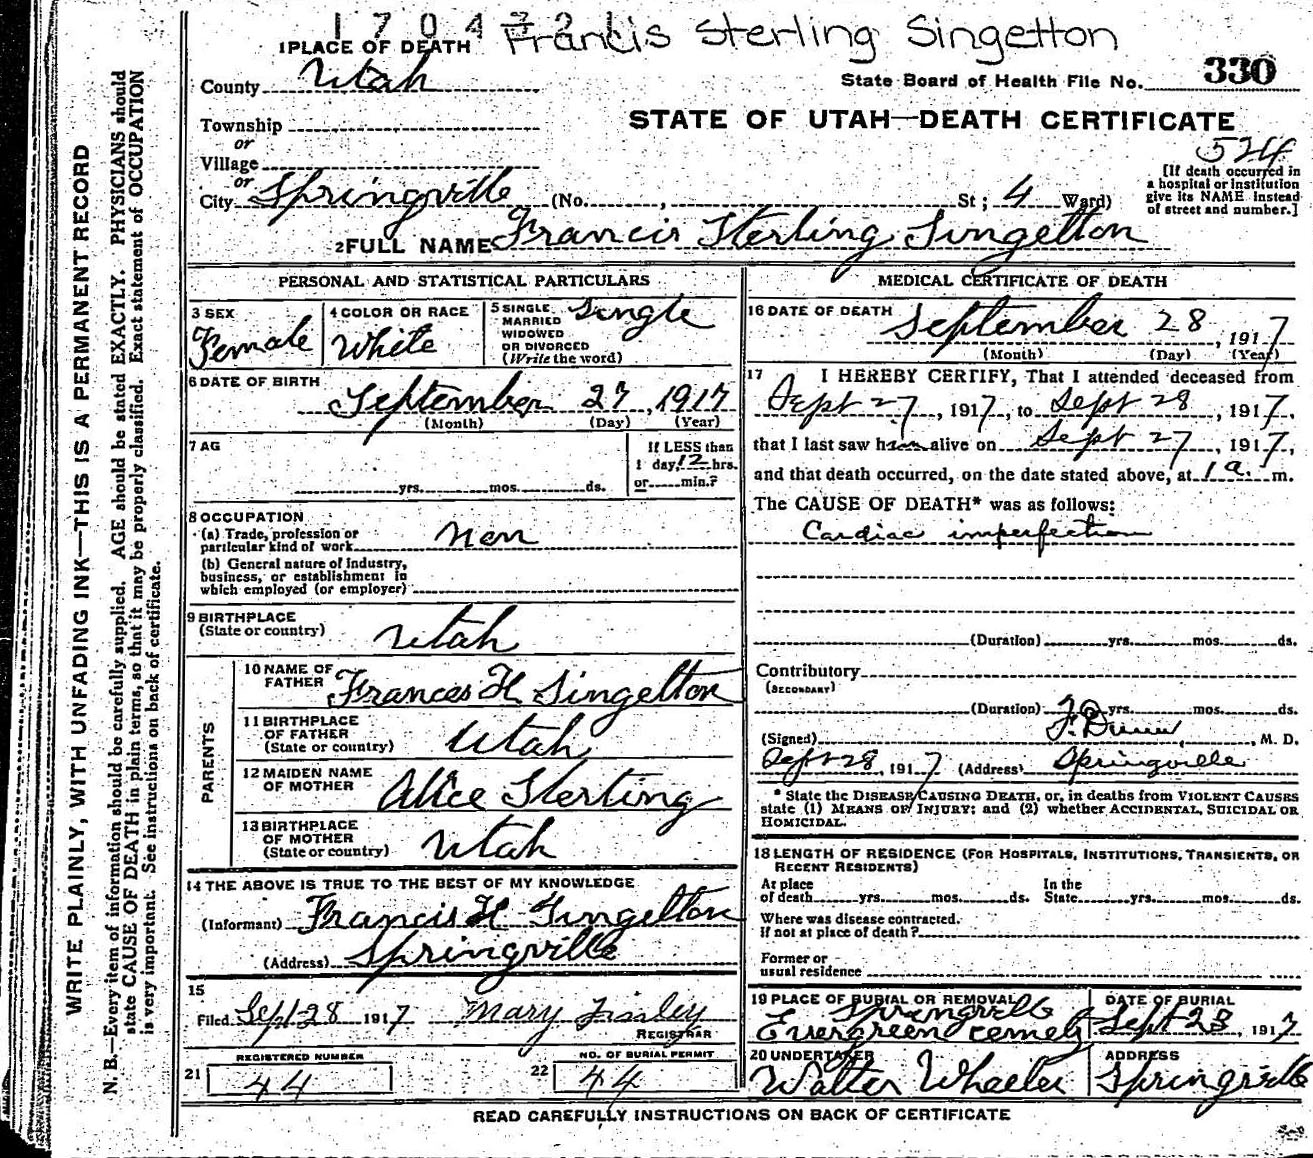 1 7 0 4 3 2 Francis Sterling Singetton
1 PLACE OF DEATH
County Utah
State Board of Health File No. 330
Township
or
Village
or
City Springville (No. , St; 4 Ward)
STATE OF UTAH—DEATH CERTIFICATE
524
[If death occurred in
a hospital or institution
give its NAME instead
of street and number.]
2 FULL NAME Francis Sterling Singelton
PERSONAL AND STATISTICAL PARTICULARS
3 SEX
Female
4 COLOR OR RACE
White
5 SINGLE,
MARRIED
WIDOWED
OR DIVORCED
(Write the word)
Single
6 DATE OF BIRTH
September 27, 1917
(Month) (Day) (Year)
7 AG
yrs. mos. ds.
If LESS than
1 day, 12 hrs.
or min.?
8 OCCUPATION
(a) Trade, profession or
particular kind of work Non
(b) General nature of industry,
business, or establishment in
which employed (or employer)
9 BIRTHPLACE
(State or country) Utah
PARENTS
10 NAME OF
FATHER Frances H Singelton
11 BIRTHPLACE
OF FATHER
(State or country) Utah
12 MAIDEN NAME
OF MOTHER Alice Sterling
13 BIRTHPLACE
OF MOTHER
(State or country) Utah
14 THE ABOVE IS TRUE TO THE BEST OF MY KNOWLEDGE
(Informant) Francis H Singelton
(Address) Springville
15
Filed Sept 28 1917 Mary Finley
REGISTRAR
REGISTERED NUMBER
21 44
NO. OF BURIAL PERMIT
22 44
MEDICAL CERTIFICATE OF DEATH
16 DATE OF DEATH
September 28, 1917
(Month) (Day) (Year)
17 I HEREBY CERTIFY, That I attended deceased from
Sept 27, 1917, to Sept 28, 1917,
that I last saw him alive on Sept 27, 1917,
and that death occurred, on the date stated above, at 1 a. m.
The CAUSE OF DEATH* was as follows:
Cardiac imperfection
(Duration) yrs. mos. ds.
Contributory
(SECONDARY)
(Duration) yrs. mos. ds.
(Signed) , M. D.
Sept 28, 1917 (Address) Springville
* State the DISEASE CAUSING DEATH, or, in deaths from VIOLENT CAUSES
state (1) MEANS OF INJURY; and (2) whether ACCIDENTAL, SUICIDAL OR
HOMICIDAL.
18 LENGTH OF RESIDENCE (FOR HOSPITALS, INSTITUTIONS, TRANSIENTS, OR
RECENT RESIDENTS)
At place
of death yrs. mos. ds.
In the
State yrs. mos. ds.
Where was disease contracted.
If not at place of death?
Former or
usual residence
19 PLACE OF BURIAL OR REMOVAL
Springville
Evergreen cemety
DATE OF BURIAL
Sept 28, 1917
20 UNDERTAKER
Walter Wheeler
ADDRESS
Springville
READ CAREFULLY INSTRUCTIONS ON BACK OF CERTIFICATE
WRITE PLAINLY, WITH UNFADING INK—THIS IS A PERMANENT RECORD
N. B.—Every item of information should be carefully supplied. AGE should be stated EXACTLY. PHYSICIANS should
state CAUSE OF DEATH in plain terms, so that it may be properly classified. Exact statement of OCCUPATION
is very important. See instructions on back of certificate.